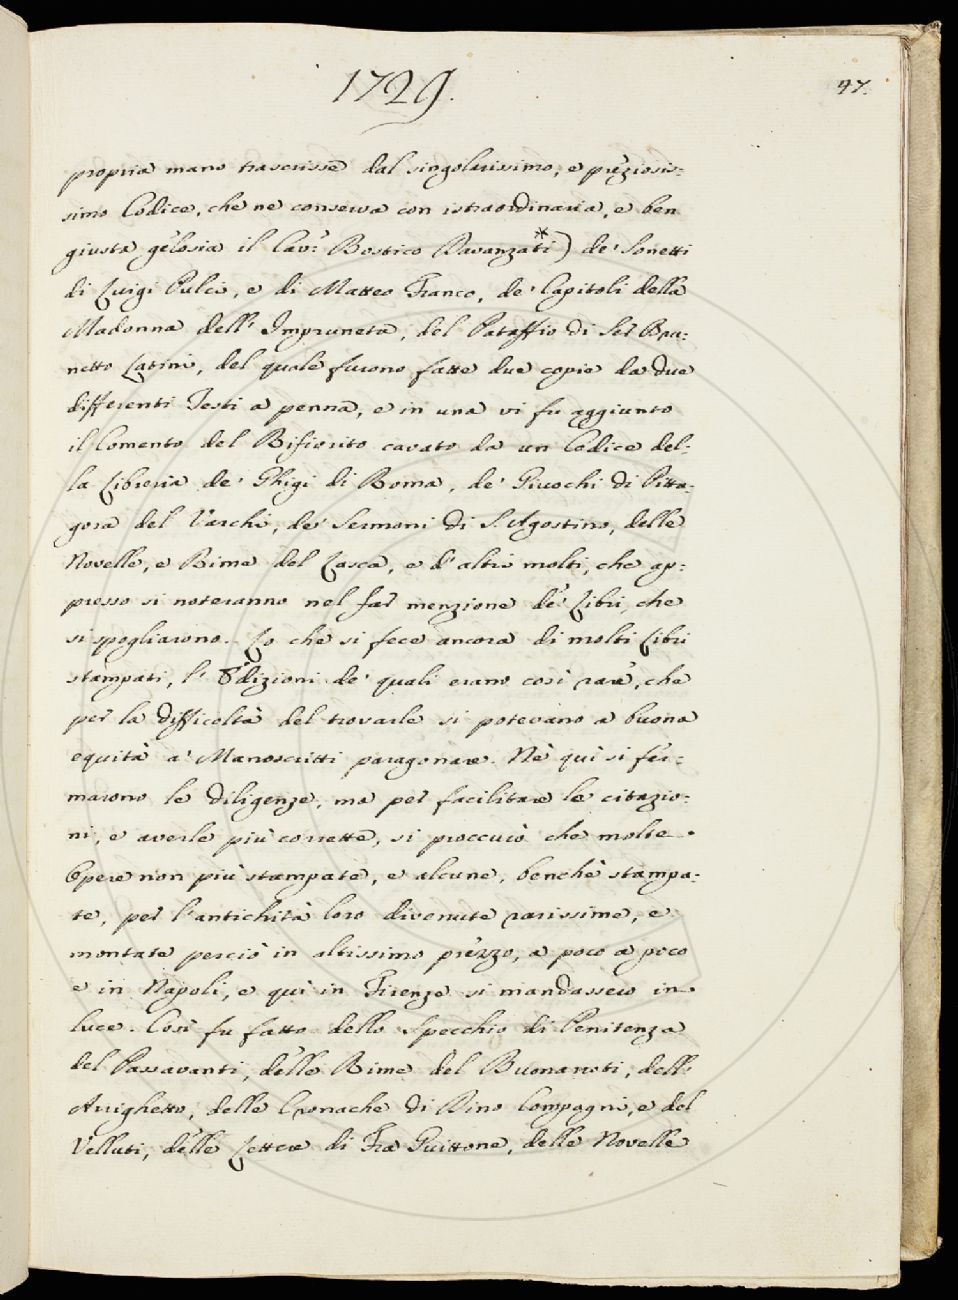 1729.
47.
propria mano trascrisse dal singolarissimo, e prezio­sis:
simo Codice, che ne conserva con istraordinaria, e ben
giusta gelosia il Cav:r Bostico Davanzati*) de' Sonetti
di Luigi Pulci, e di Matteo Franco, de' Capitoli della
Madonna dell' Impruneta, del Pataffio di Ser Bru:
netto Latini, del quale furono fatte due copie da due
differenti Testi a penna, e in una vi fu aggiunto
il Comento del Rifiorito cavato da un Codice del:
la Libreria de' Ghigi di Roma, de' Giuochi di Pitta:
gora del Varchi, de' Sermoni di S. Agostino, delle
Novelle, e Rime del Lasca, e d' altri molti, che ap:
presso si noteranno nel far menzione de' Libri, che
si spogliarono. Lo che si fece ancora di molti Libri
stampati, l' Edizioni de' quali erano così rare, che
per la difficoltà del trovarle si potevano a buona
equità a' Manoscritti paragonare. Nè quì si fer:
marono le diligenze, ma per facilitare le citazio:
ni, e averle più corrette, si proccurò che molte
Opere non più stampate, e alcune, benchè stampa:
te, per l'antichità loro divenute rarissime, e
montate perciò in altissimo prezzo, a poco a poco
e in Napoli, e quì in Firenze si mandassero in
luce. Così fu fatto dello Specchio di Penitenza
del Passavanti, delle Rime del Buonarroti, dell'
Arrighetto, delle Cronache di Dino Compagni, e del
Velluti, delle Lettere di Fra Guittone, delle Novelle